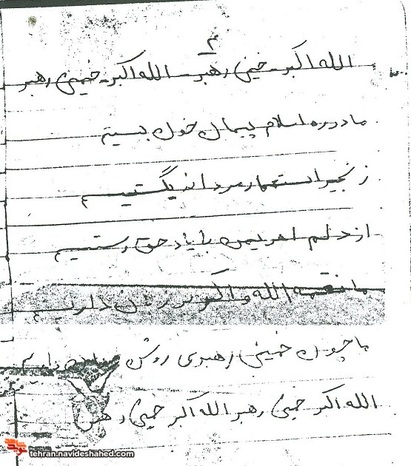 ۲
الله اکبر خمینی رهبر الله اکبر خمینی رهبر
ما در ره اسلام پیمان خون بستیم
زنجیر استعمار مردانه بگستیم
از دام اهریمن با یاد حق رستیم
ما نغمه الله و اکبر بر زبان داریم
ما چون خمینی رهبری روشن
الله اکبر خمینی رهبر الله اکبر خمینی رهبر
tehran.navideshahed.com